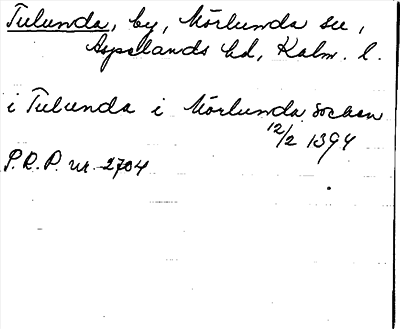 Tulunda, by, Mörlunda sn,
Aspelands hd, Kalm. l.
i Tulunda i Mörlunda socken
12/2 1394
P.R.P. nr. 2704